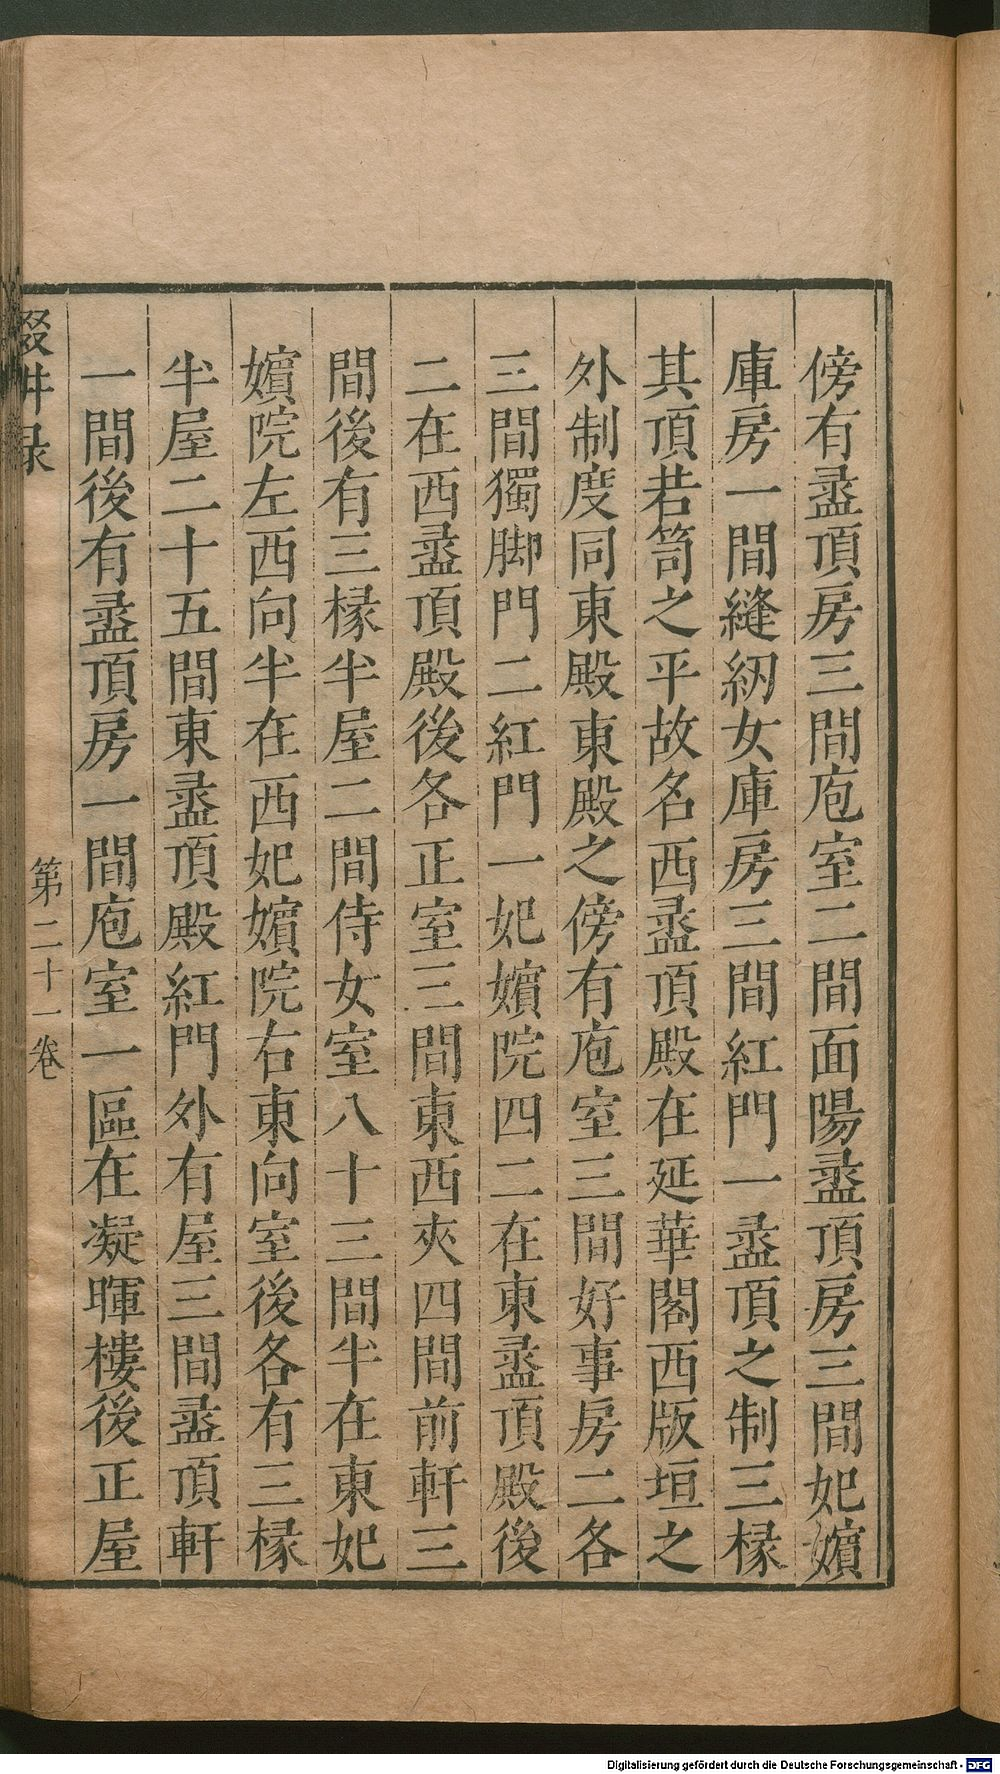 傍有盝頂房三間庖室二間面陽盝頂房三間妃嬪
庫房一間縫紉女庫房三間紅門一盝頂之制三椽
其頂若笥之平故名西盝頂殿在延華閣西版垣之
外制度同東殿東殿之傍有庖室三間好事房二各
三間獨脚門二紅門一妃嬪院四二在東盝頂殿後
二在西盝頂殿後各正室三間東西夾四間前軒三
間後有三椽半屋二間侍女室八十三間半在東妃
嬪院左西向半在西妃嬪院右東向室後各有三椽
半屋二十五間東盝頂殿紅門外有屋三間盝頂軒
一間後有盝頂房一間庖室一區在凝暉樓後正屋
輟耕録 第二十一卷
Digitalisierung gefördert durch die Deutsche Forschungsgemeinschaft - DFG